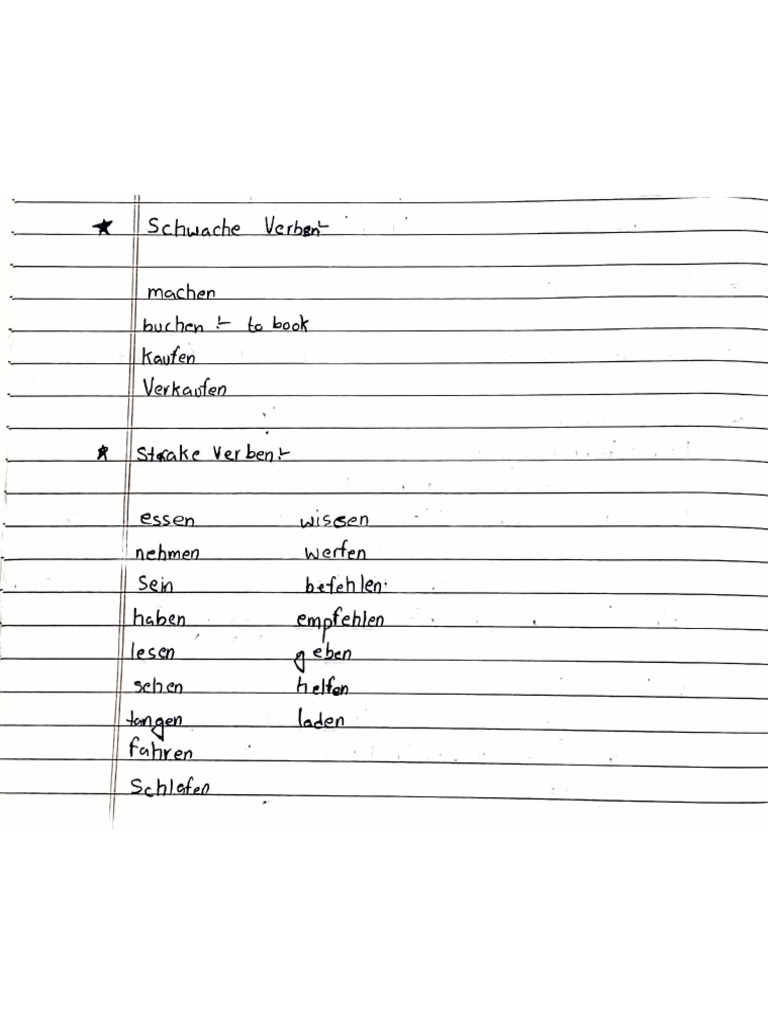 ★ Schwache Verben :-
machen
buchen :- to book
Kaufen
Verkaufen
★ Strake Verben :-
essen wissen
nehmen werfen
Sein befehlen
haben empfehlen
lesen geben
sehen helfen
tangen laden
fahren
Schlafen